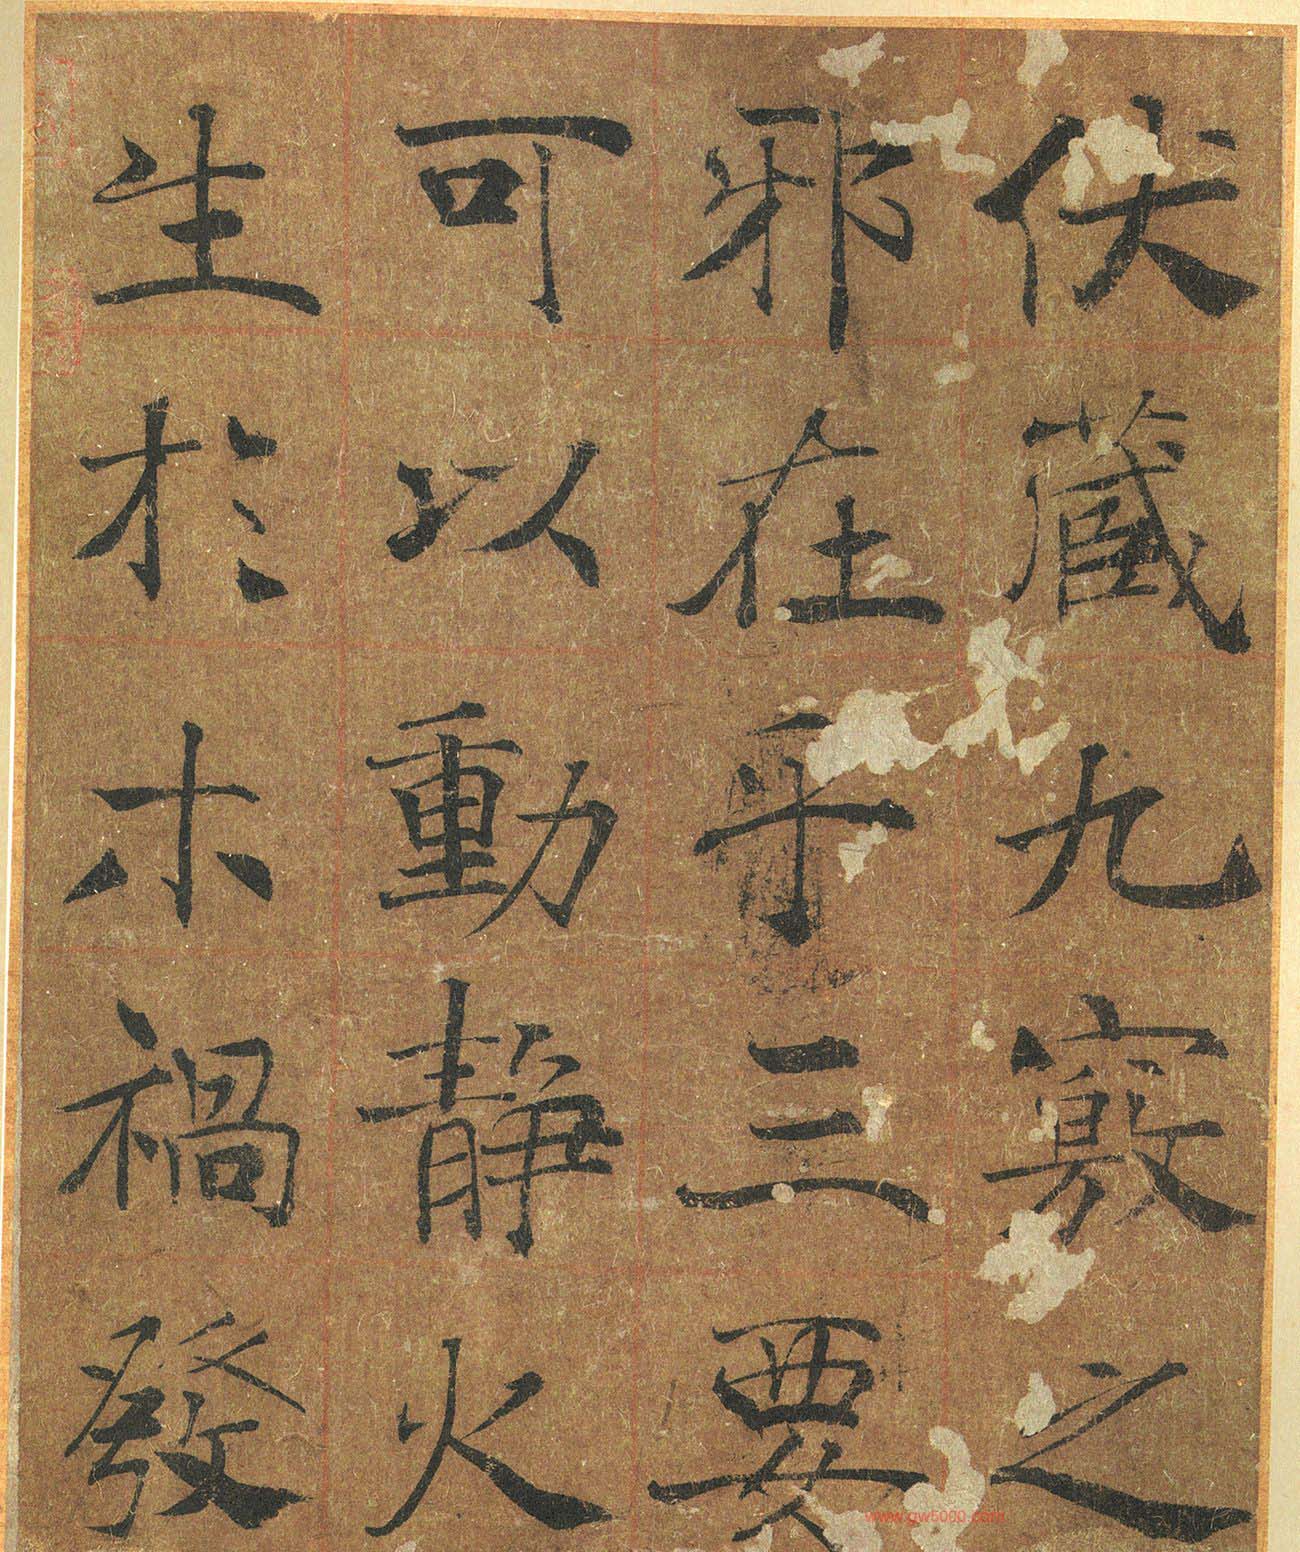 伏藏九竅之
邪在乎三要
可以動靜火
生於木禍發
www.gw5000.com